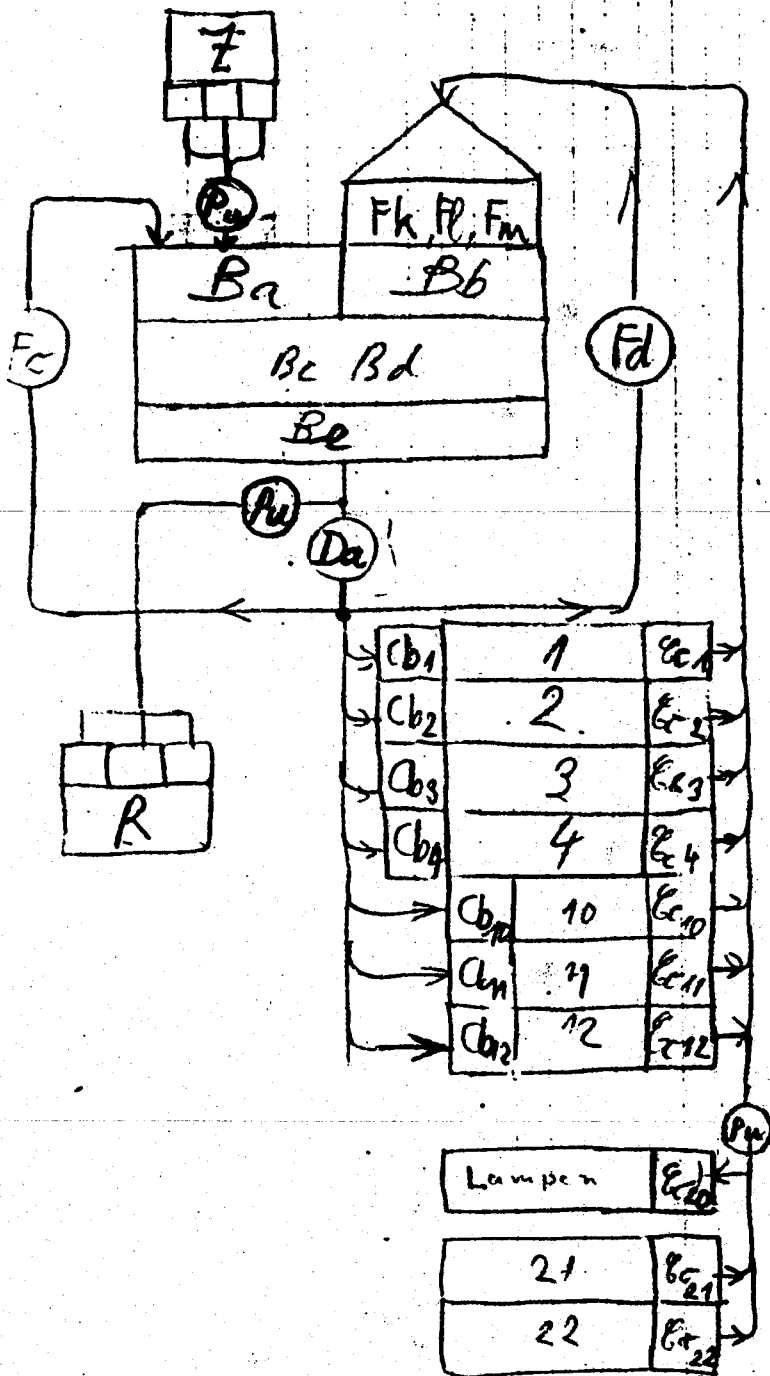 Z
Pu
Fk, Fl, Fm
Ba Bb
Fc
Fd
Bc Bd
Be
Pu
Da
Cb1 1 Ec1
Cb2 2. Ec2
Cb3 3 Ec3
R
Cb4 4 Ec4
Cb10 10 Ec10
Cb11 11 Ec11
Cb12 12 Ec12
Pu
Lampen Ec20
21 Ec21
22 Ec22